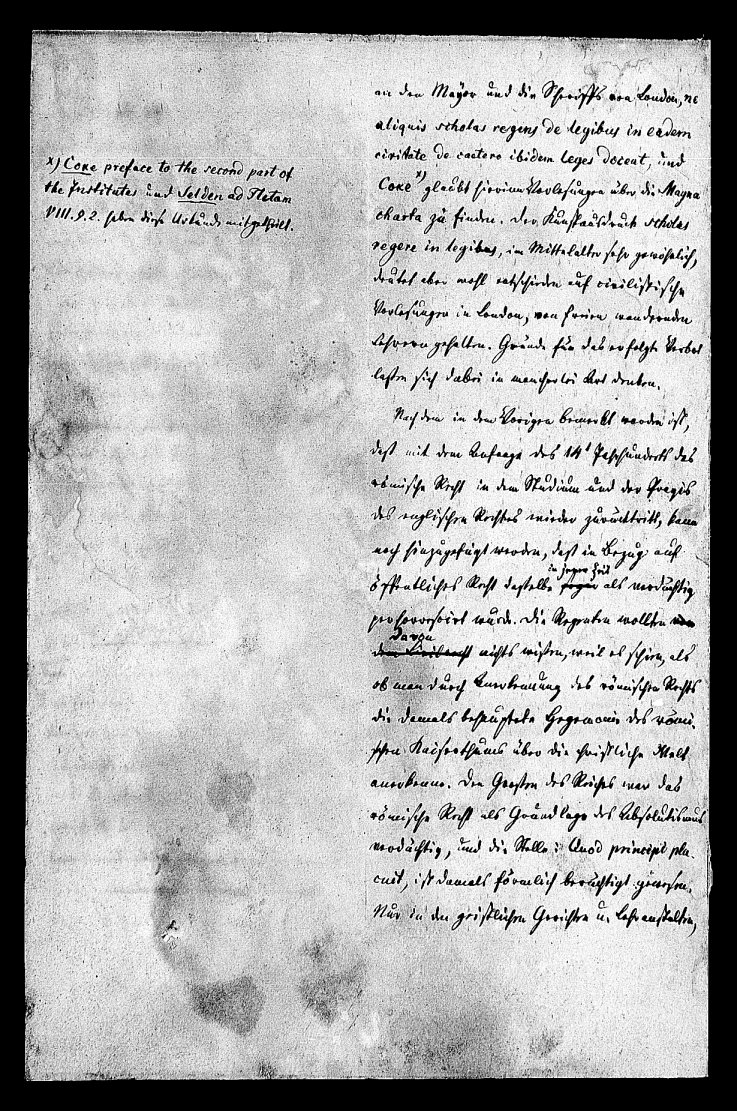 x) Coxe preface to the second part of
the Institutes und Selden ad Fletam
VIII. §. 2. haben diese Urkunde mitgetheilt.
an den Mayor und die Sheriffs von London, ne
aliquis scholas regens de legibus in eadem
civitate de caetero ibidem leges doceat, und
Coxe x) glaubt hierinn Vorlesungen über die Magna
charta zu finden. Der Kunstausdruck scholas
regere in legibus, im Mittelalter sehr gewöhnlich,
deutet aber wohl entschieden auf civilistische
Vorlesungen in London, von freien wandernden
Lehrern gehalten. Gründe für das erfolgte Verbot
lassen sich dabei in mancherlei Art denken.
Nachdem in dem Vorigen bemerkt worden ist,
daß mit dem Anfange des 14t Jahrhunderts das
römische Recht in dem Studium und der Praxis
des englischen Rechtes wieder zurücktritt, kann
noch hinzugefügt werden, daß in Bezug auf
öffentliches Recht dasselbe in jener Zeit als verdächtig
perhorrescirt wurde. Die Regenten wollten
davon nichts wissen, weil es schien, als
ob man durch Anerkennung des römischen Rechts
die damals behauptete Hegemonie des römi-
schen Kaiserthums über die christliche Welt
anerkenne. Den Großen des Reiches war das
römische Recht als Grundlage des Absolutismus
verdächtig, und die Stelle: Quod principi pla-
cuit, ist damals förmlich berüchtigt gewesen.
Nur in den geistlichen Gerichten u. Lehranstalten,